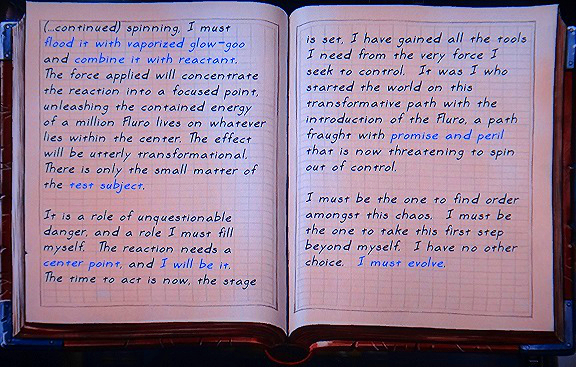 (...continued) spinning, I must
flood it with vaporized glow-goo
and combine it with reactant.
The force applied will concentrate
the reaction into a focused point,
unleashing the contained energy
of a million Fluro lives on whatever
lies within the center. The effect
will be utterly transformational.
There is only the small matter of
the test subject.
It is a role of unquestionable
danger, and a role I must fill
myself. The reaction needs a
center point, and I will be it.
The time to act is now, the stage
is set, I have gained all the tools
I need from the very force I
seek to control. It was I who
started the world on this
transformative path with the
introduction of the Fluro, a path
fraught with promise and peril
that is now threatening to spin
out of control.
I must be the one to find order
amongst this chaos. I must be
the one to take this first step
beyond myself. I have no other
choice. I must evolve.